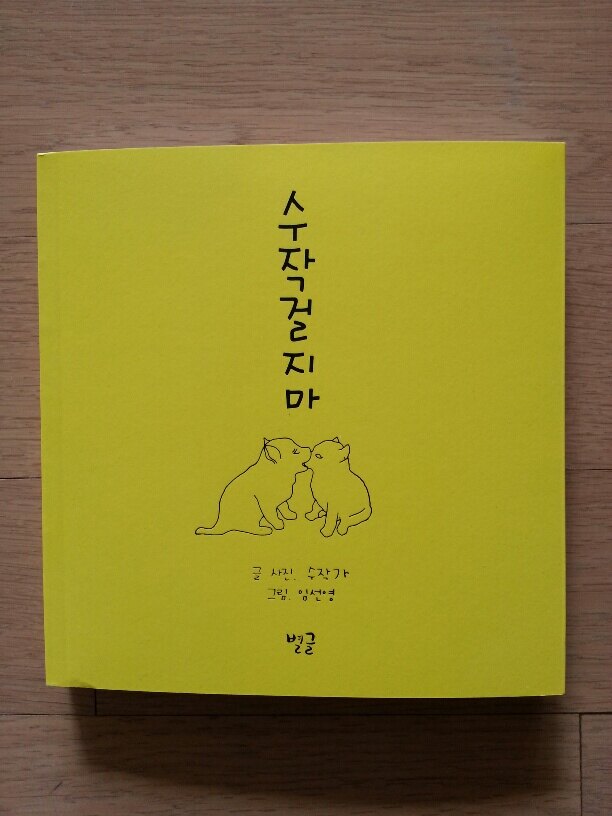 수작걸지마
글 사진. 수작가
그림. 임선영
별글